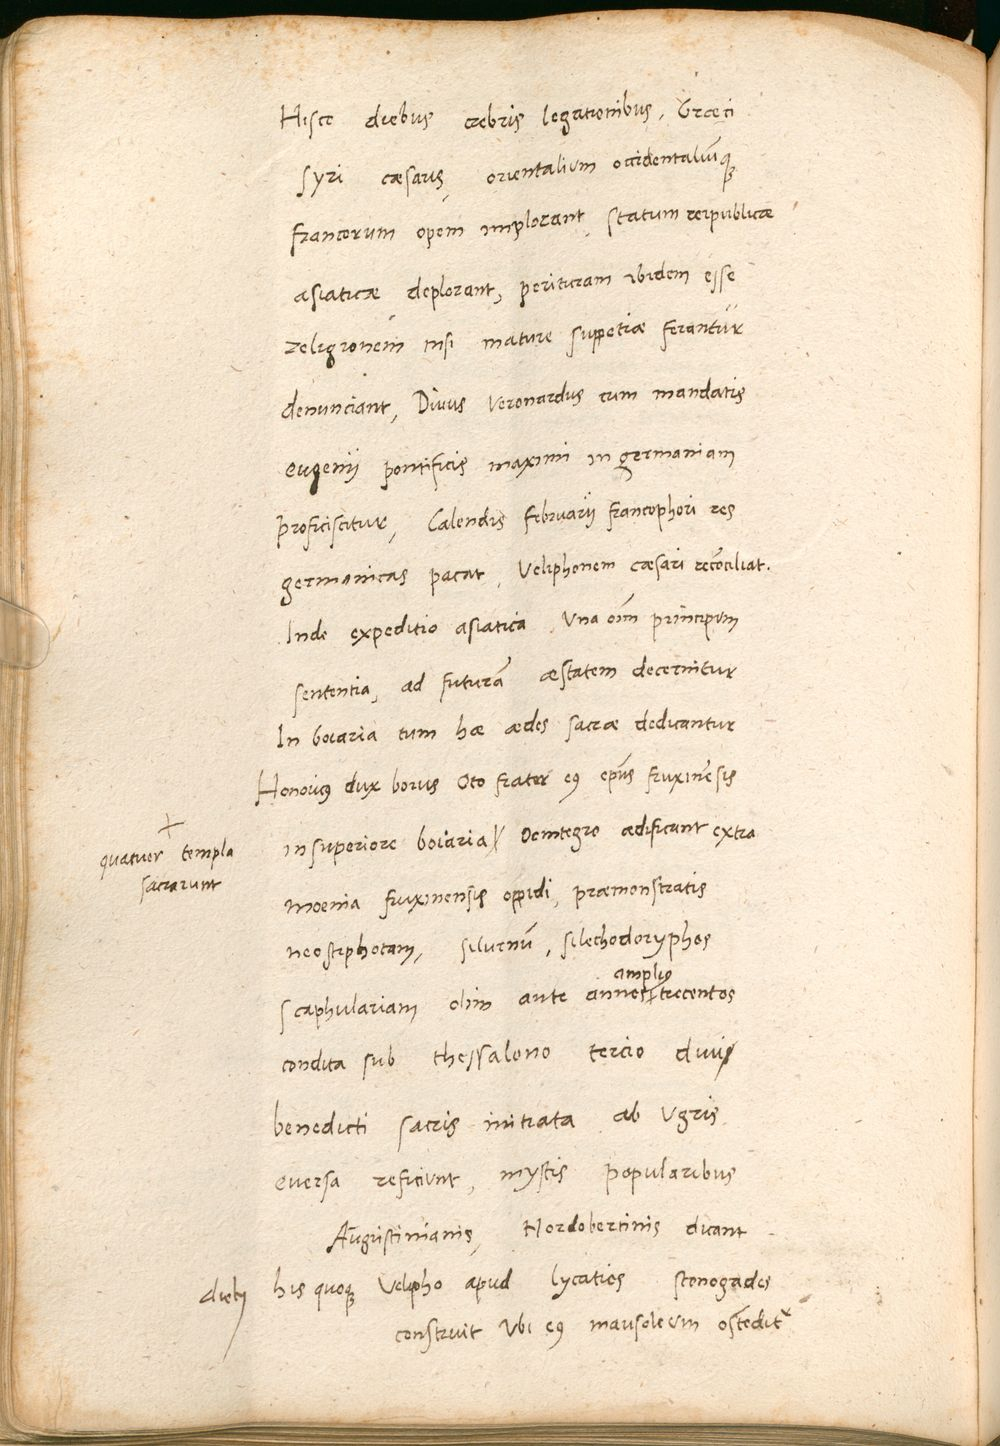 Hisce diebus crebris legationibus, Græci
syri cæsaris, orientalium occidentaliūq;
francorum opem implorant, statum reipublicæ
asiaticæ deplorant, perituram ibidem esse
religionem nisi mature suppetiæ ferantur
denunciant, Divus Veronardus cum mandatis
eugenij pontificis maximi in germaniam
proficiscitur, Calendis februarij francophori res
germanicas pacat, Veliphonem cæsari recōciliat.
Inde expeditio asiatica, una oīm principum
sententia, ad futurā æstatem decernitur
In boiaria tum hæ ædes sacræ dedicantur
Honoricꝰ dux boius Oto frater eꝰ ep̄us fruxinēsis
in superiore boiaria
quatuor templa
sacrarunt
Deintegro ædificant extra
moenia fruxinensis oppidi, præmonstratis
neostiphotam, silurnū, silechodoryphos
scaphulariam olim ante annos ampliꝰ trecentos
condita sub thessalono tercio divi
benedicti sacris initiata ab Ugris
eversa reficiunt, mystis popularibus
Augustinianis, Nordobertinis dicant
dictis his quoq; Velipho apud lycatios stenogades
construit ubi eꝰ mausoleum ostēdit